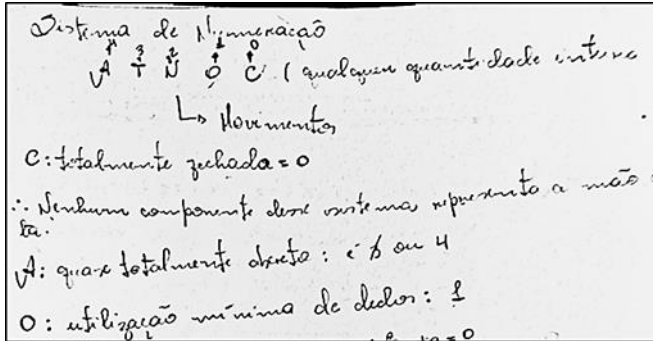 Sistema de Numeração
4 3 2 1 0
A T N O C (qualquer quantidade inteira
↳ Movimentos
C: totalmente fechada = 0
∴ Nenhum componente desse sistema representa a mão
ta.
A: quase totalmente aberta: é 5 ou 4
O: utilização mínima de dedos: 1
= 0